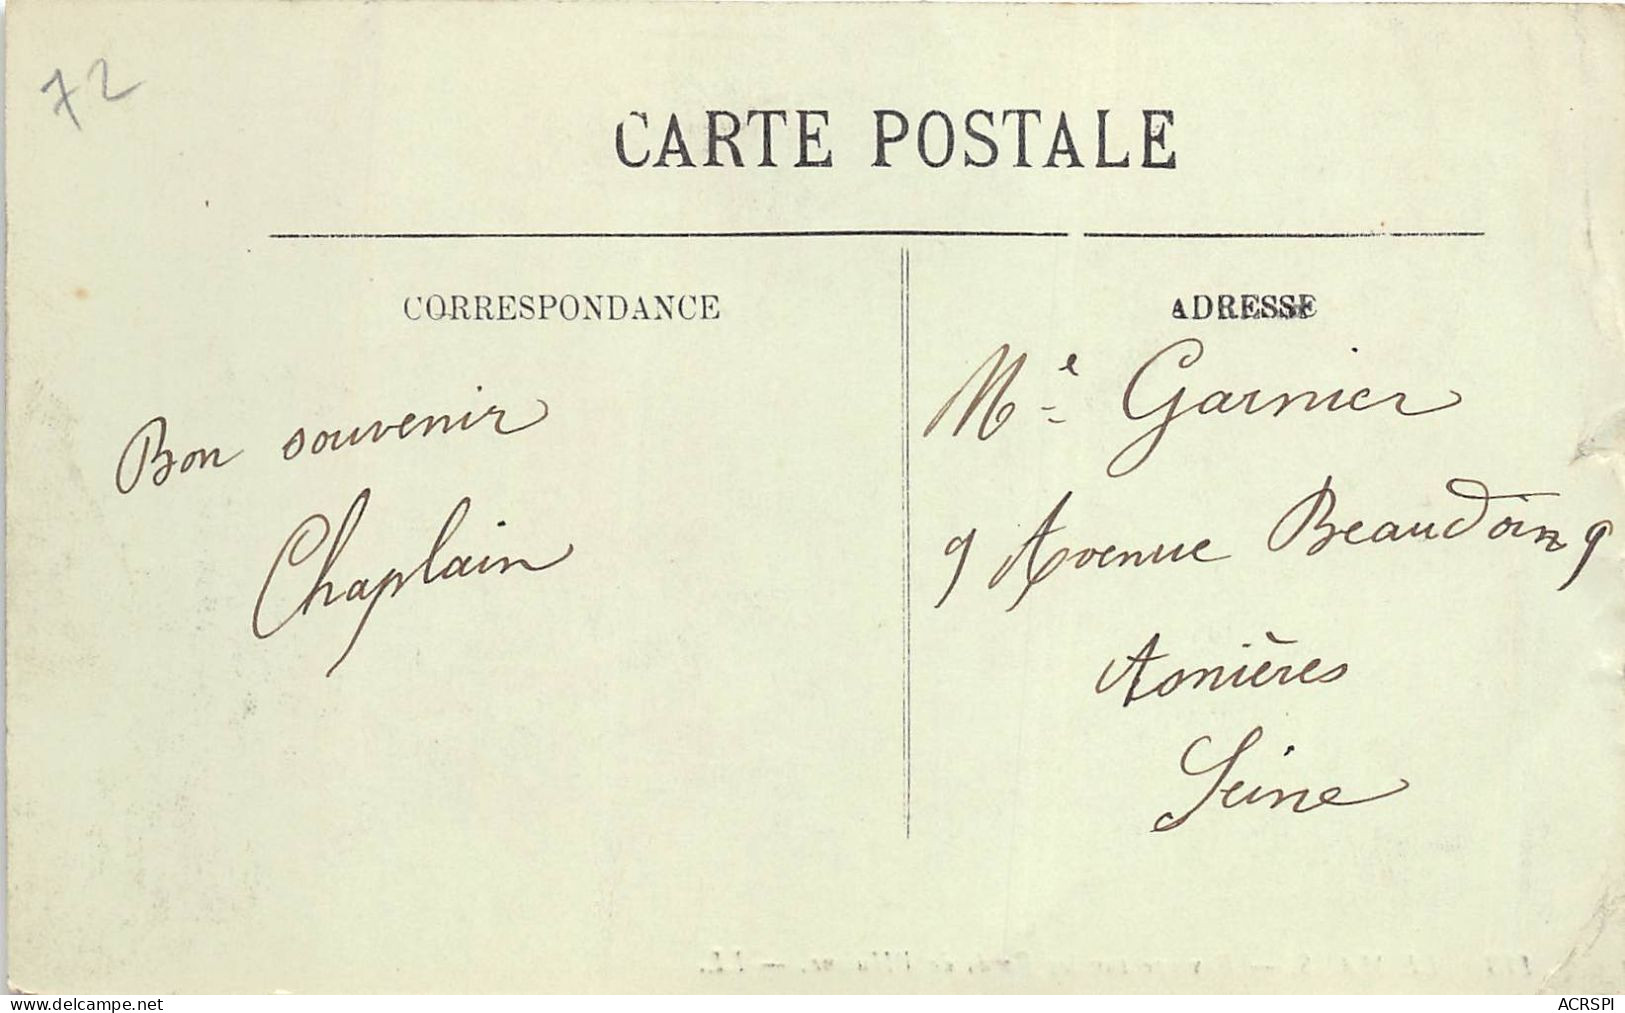 72
CARTE POSTALE
CORRESPONDANCE
Bon souvenir
Chaplain
ADRESSE
Mle Garnier
9 Avenue Beaudoing 9
Asnières
Seine
ACRSPI